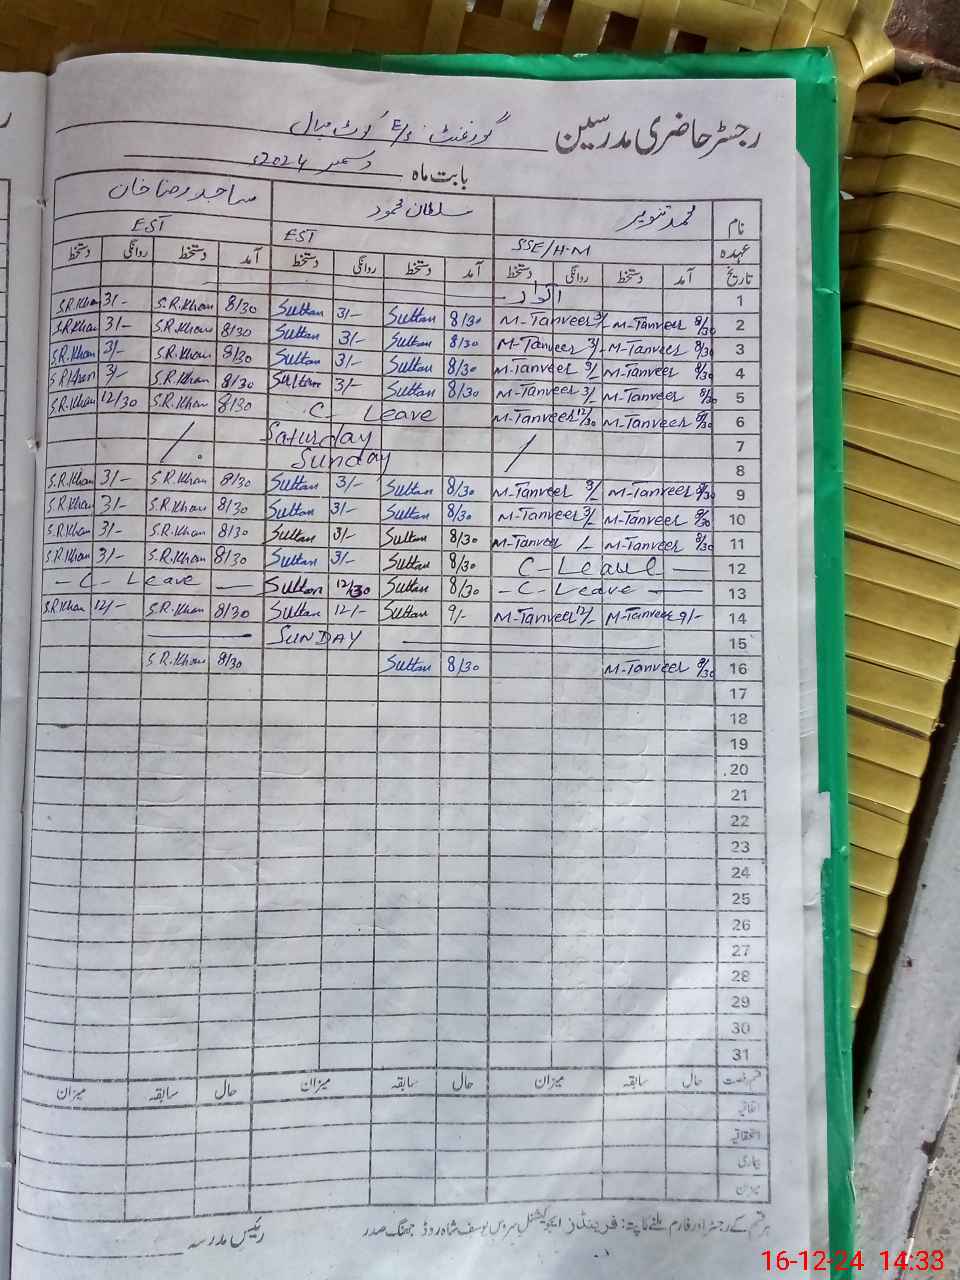 رجسٹر حاضری مدرسین گورنمنٹ E/s کوٹ میال
بابت ماہ دسمبر 2024ء
نام محمد تنویر سلطان محمود ساجد رضا خان
عہدہ SSE/H.M EST EST
تاریخ آمد دستخط روانگی دستخط آمد دستخط روانگی دستخط آمد دستخط روانگی دستخط
1 اتوار
S.R.Khan 3/- S.R.Khan 8/30 Sultan 3/- Sultan 8/30 M-Tanveer 3/- M-Tanveer 8/30 2
S.R.Khan 3/- S.R.Khan 8/30 Sultan 3/- Sultan 8/30 M-Tanveer 3/- M-Tanveer 8/30 3
S.R.Khan 3/- S.R.Khan 8/30 Sultan 3/- Sultan 8/30 M-Tanveer 3/- M-Tanveer 8/30 4
S.R.Khan 3/- S.R.Khan 8/30 Sultan 3/- Sultan 8/30 M-Tanveer 3/- M-Tanveer 8/30 5
S.R.Khan 12/30 S.R.Khan 8/30 C- Leave M-Tanveer 12/30 M-Tanveer 8/30 6
Saturday 7
Sunday 8
S.R.Khan 3/- S.R.Khan 8/30 Sultan 3/- Sultan 8/30 M-Tanveer 3/- M-Tanveer 8/30 9
S.R.Khan 3/- S.R.Khan 8/30 Sultan 3/- Sultan 8/30 M-Tanveer 3/- M-Tanveer 8/30 10
S.R.Khan 3/- S.R.Khan 8/30 Sultan 3/- Sultan 8/30 M-Tanveer /- M-Tanveer 8/30 11
S.R.Khan 3/- S.R.Khan 8/30 Sultan 3/- Sultan 8/30 C-Leave 12
- C- Leave - Sultan 12/30 Sultan 8/30 - C- Leave - 13
S.R.Khan 12/- S.R.Khan 8/30 Sultan 12/- Sultan 9/- M-Tanveer 12/- M-Tanveer 9/- 14
SUNDAY 15
S.R.Khan 8/30 Sultan 8/30 M-Tanveer 8/30 16
17
18
19
20
21
22
23
24
25
26
27
28
29
30
31
قسم رخصت حال سابقہ میزان حال سابقہ میزان حال سابقہ میزان
اتفاقیہ
استحقاقیہ
بیماری
میزان
ہر قسم کے رجسٹر اور فارم ملنے کا پتہ: فرینڈز ایجوکیشنل سروس یوسف شاہ روڈ جھنگ صدر
رئیس مدرسہ
16-12-24 14:33